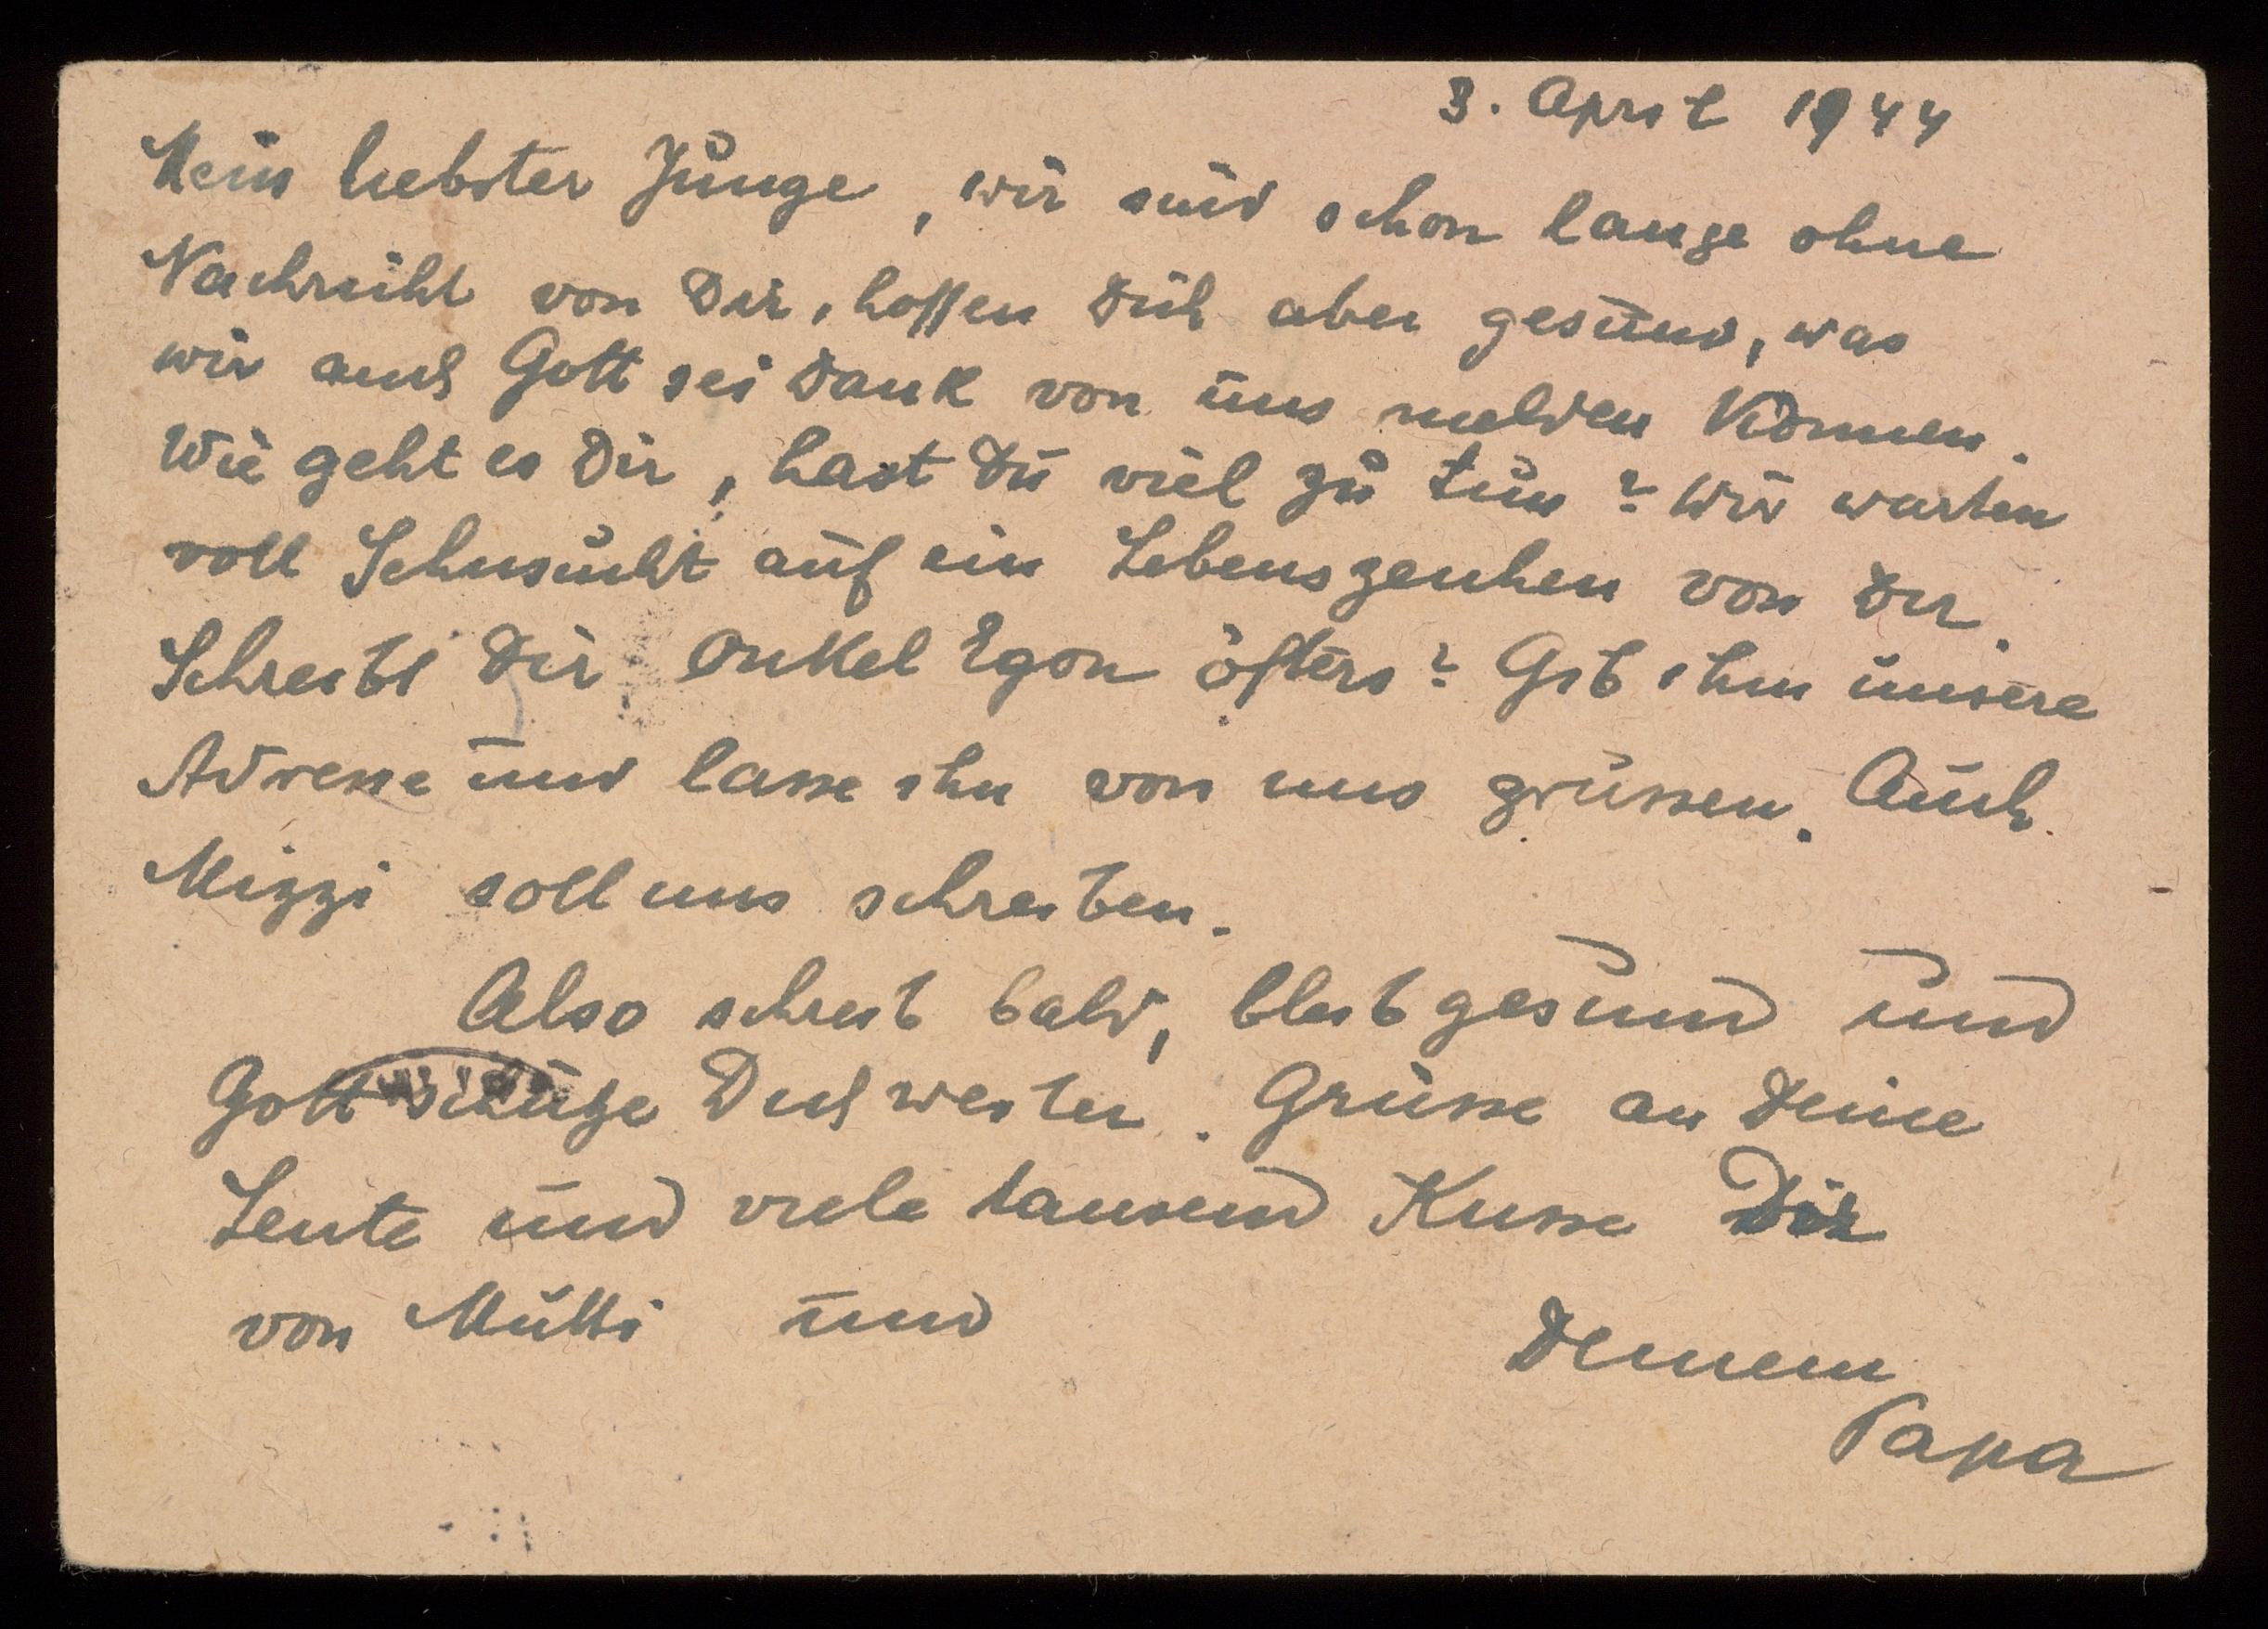 3. April 1944
Mein liebster Junge, wir sind schon lange ohne
Nachricht von Dir, hoffen Dich aber gesund, was
wir auch Gott sei Dank von uns melden können.
Wie geht es Dir, hast Du viel zu tun? Wir warten
voll Sehnsucht auf ein Lebenszeichen von Dir.
Schreibt Dir Onkel Egon öfters? Gib ihm unsere
Adresse und lasse ihn von uns grüssen. Auch
Mizzi soll uns schreiben.
Also schreib bald, bleib gesund und
Gott schütze Dich weiter. Grüsse an Deine
Leute und viele tausend Küsse Dir
von Mutti und
Deinem
Papa